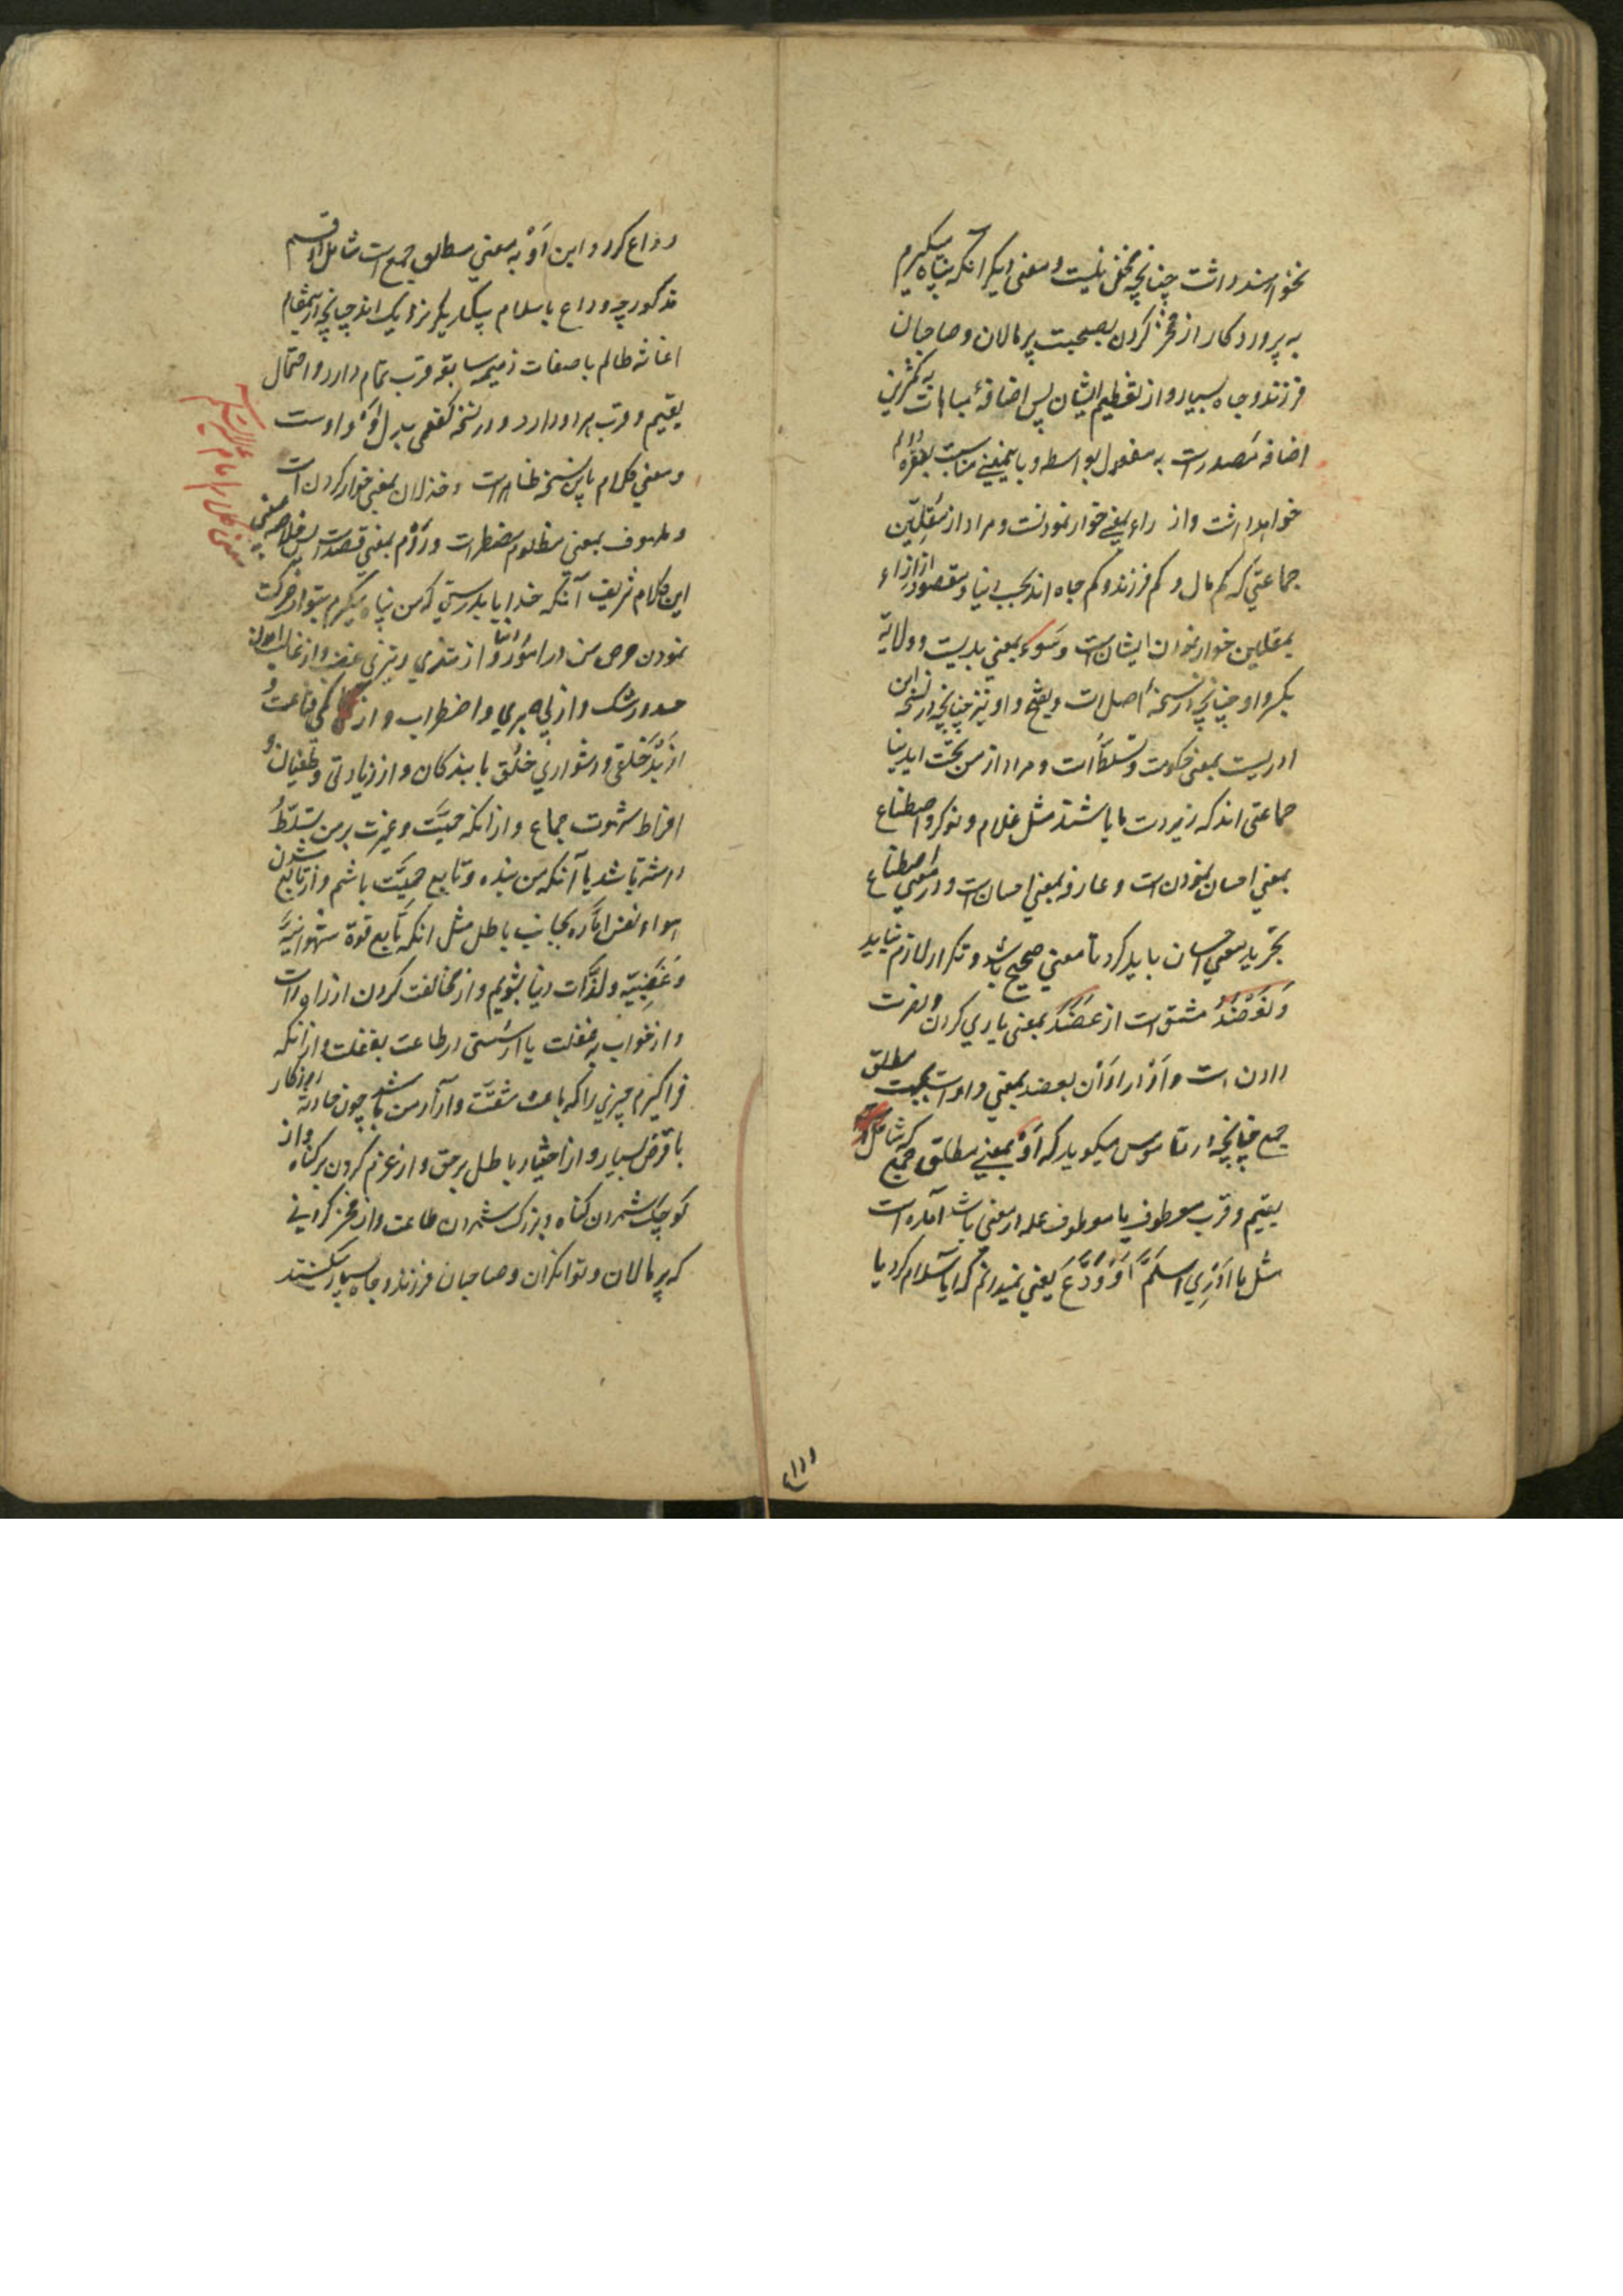 نخواهند داشت چنانچه مخفی نیست و معنی دیگر آنکه پناه میگیرم
به پروردگار از فخر کردن بصحبت پر مالان و صاحبان
فرزند و جاه بسیار و از تعظیم ایشان پس اضافهٔ مباهات به مکثرین
اضافه مصدر است به مفعول بواسطه و باینمعنی مناسبت بفقره
خواهد داشت و از راء بمعنی خوار نمودنست و مراد از مقلین
جماعتی که کم مال و کم فرزند و کم جاه اند بحسب دنیا و مقصود از ازراء
بمقلین خوار نمودن ایشان است و سوء بمعنی بدیست و ولایة
بکسر واو چنانچه در نسخهٔ اصل است و بفتح واو نیز چنانچه در نسخه ابن
ادریست بمعنی حکومت و تسلط است و مراد از من تحت ایدینا
جماعتی اند که زیردست ما باشند مثل غلام و نوکر و اصطناع
بمعنی احسان نمودن است و عارفه بمعنی احسان است و در معنی اصطناع
تجرید معنی احسان باید کرد تا معنی صحیح باشد و تکرار لازم نیاید
و نعضد مشتق است از عضد بمعنی یاری کردن و نصرت
دادن است و او در او ان نعضد بمعنی واو است بجهت مطلق
جمع چنانچه در قاموس میگوید که او بمعنی مطلق جمع که شامل
تقیم و قرب معطوف یا معطوف علیه در معنی باشد آمده است
مثل ما ادری اسلم او ودع یعنی نمیدانم که ایا سلام کرد یا
وداع کرد و این او به معنی مطلق جمع است شامل دو قسم
مذکور چه وداع با سلام بیکدیگر نزدیک اند چنانچه در اینمقام
اغاثه ظالم با صفات ذمیمه سابقه قرب تمام دارد و احتمال
تقیم و قرب هر دو دارد و در نسخه کفعمی بدل او واو است
و معنی کلام باین نسخه ظاهر است و خذلان بمعنی خوار کردن است
و ملهوف بمعنی مظلوم مضطر است و روم بمعنی قصد است پس خلاصه معنی
این کلام شریف آنکه خدایا بدرستی که من پناه میگیرم بتو از حرکت
نمودن حرص من در امور دنیا و از تندی و تیزی غضب و از غالب امدن
حسد و رشک و از بی صبری و اضطراب و از کمی قناعت و
از بد خلقی و دشواری خلق با بندگان و از زیادتی و طغیان و
افراط شهوت جماع و از انکه حمیت و غیرت بر من تسلط
داشته باشد یا آنکه من بنده و تابع حمیت باشم و از تابع شدن
هوا و نفس اماره بجانب باطل مثل انکه تابع قوة شهوانیه
و غضبیه و لذات دنیا بشویم و از مخالفت کردن از راه راست
و از خواب غفلت یا از سستی در طاعت بغفلت و از انکه
فرا گیرم چیزی را که باعث مشقت و آزار من باشد چون حادثه روزگار
با قرض بسیار و از اختیار باطل بر حق و از عزم کردن بر گناه و از
کوچک شمردن گناه و بزرگ شمردن طاعت و از فخر کردنی
که پر مالان و توانگران و صاحبان فرزند و جاه بسیار میکنند